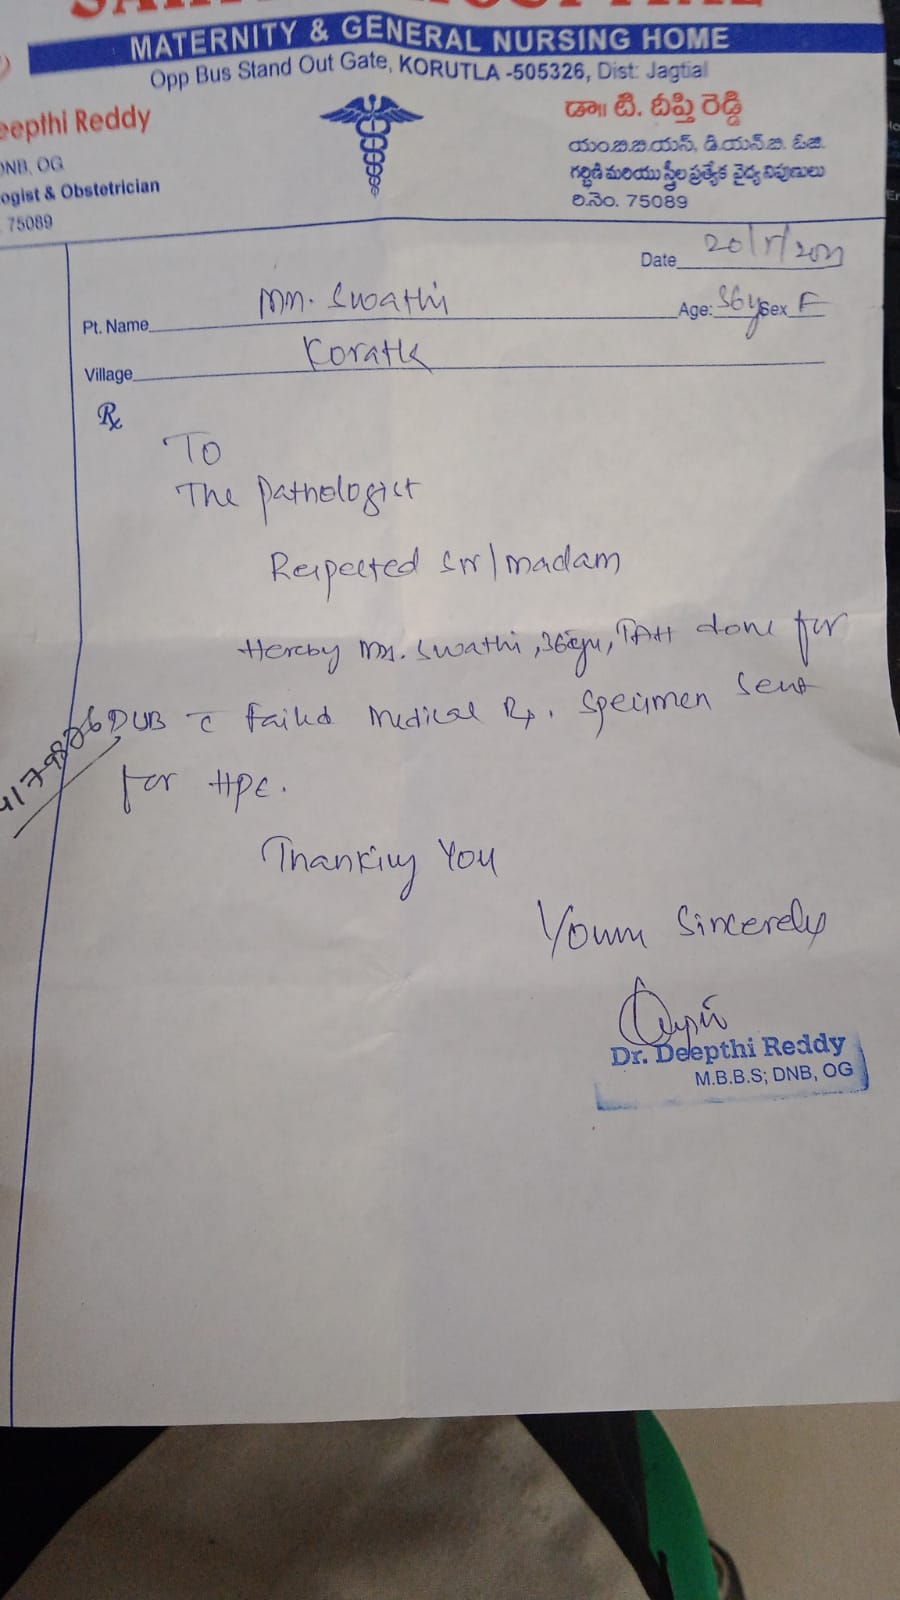 MATERNITY & GENERAL NURSING HOME
Opp Bus Stand Out Gate, KORUTLA -505326, Dist: Jagtial
eepthi Reddy
DNB, OG
ogist & Obstetrician
75089
డా॥ టి. దీప్తి రెడ్డి
యం.బి.బి.యస్, డి.యన్.బి. ఓ.జి.
గర్భిణి మరియు స్త్రీల ప్రత్యేక వైద్య నిపుణులు
రి.నెం. 75089
Date
Pt. Name Swathi Age: 36y Sex F
Village
Rx
To
The Pathologist
Respected Sir/madam
Hereby Mrs. Swathi, 36yr, TAH done for
DUB c̄ failed medical Rx. Specimen sent
for HPE.
Thanking You
Yours Sincerely
Dr. Deepthi Reddy
M.B.B.S; DNB, OG